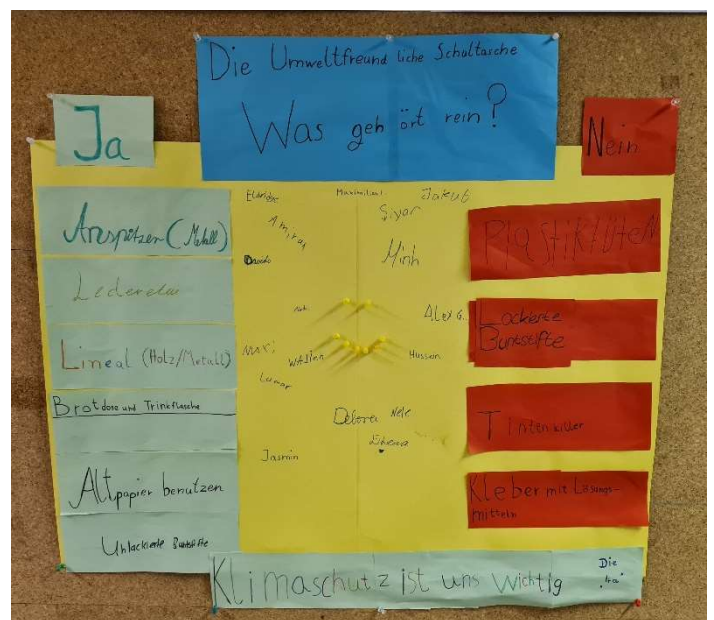 Die Umweltfreund liche Schultasche
Was geh ört rein?
Ja
Nein
Anspitzer (Metall)
Lederetui
Lineal (Holz/Metall)
Brotdose und Trinkflasche
Altpapier benutzen
Unlackierte Buntstifte
Maximilian
Jakub
Siyar
Amiras
Davide
Minh
Alex G.
Maxi
Hussein
Debora Nele
Jasmin
Plastiktüten
Lackierte
Buntstifte
Tintenkiller
Kleber mit Lösungs-
mitteln
Klimaschutz ist uns wichtig
Die
"4a"